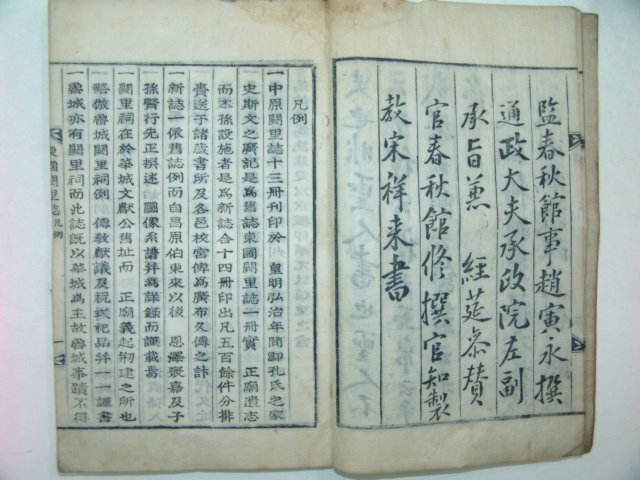 監春秋館事趙寅永撰
通政大夫承政院左副
承旨兼 經筵參贊
官春秋館修撰官知製
教宋祥來書
凡例
一中原闕里誌十三冊刊印於 皇明弘治年間卽孔氏之家
史斯文之廣記是爲舊誌東國闕里誌一冊實 正廟遺志
而本孫設施者是爲新誌合十四冊印出凡五百餘件分排
賚送于諸歲書所及各邑校宮俾爲廣布久傳之計
一新誌一依舊誌例而自昌原伯東來以後 恩澤褒嘉及子
孫賢行先正撰述 圖像系譜并爲詳錄而謹載焉
一闕里祠在於華城文獻公舊址而 正廟義起刱建之所也
略倣魯城闕里祠例 傳教獻議及祝式祀品并一一謹書
一魯城亦有闕里祠而此誌旣以華城爲主故魯城事蹟不得
東國闕里誌 凡例 一